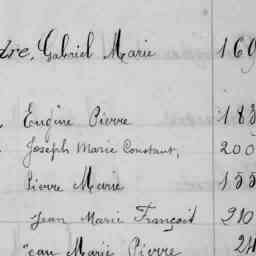 dre, Gabriel Marie 169
Eugène Pierre 183
Joseph Marie Constant, 200
Pierre Marie 155
Jean Marie François 210
ean Marie Pierre 24